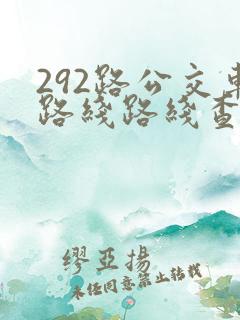 292路公交车
路线路线查
缪亚扬
未经同意禁止转载